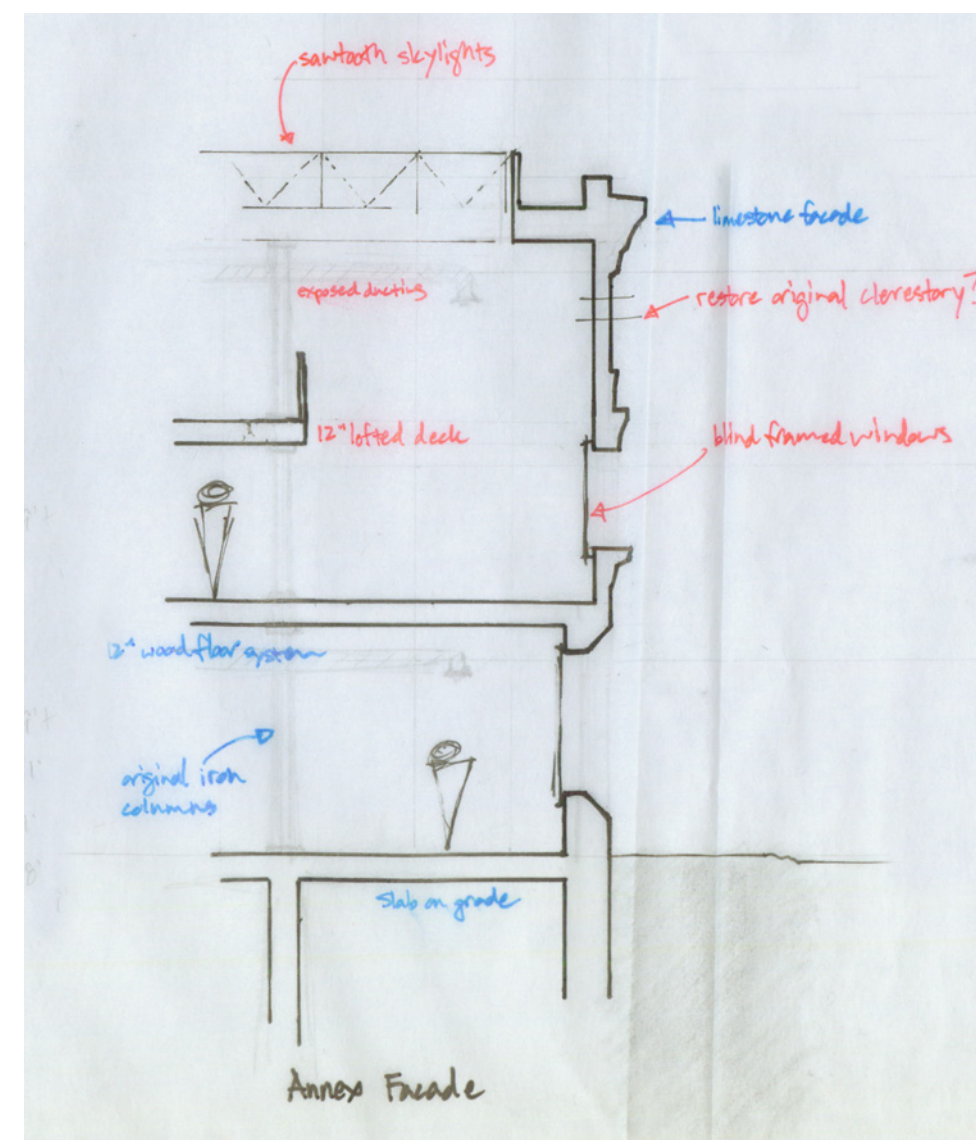 sawtooth skylights
limestone facade
exposed ducting
restore original clerestory?
12" lofted deck
blind framed windows
12" wood floor system
original iron
columns
slab on grade
Annex Facade